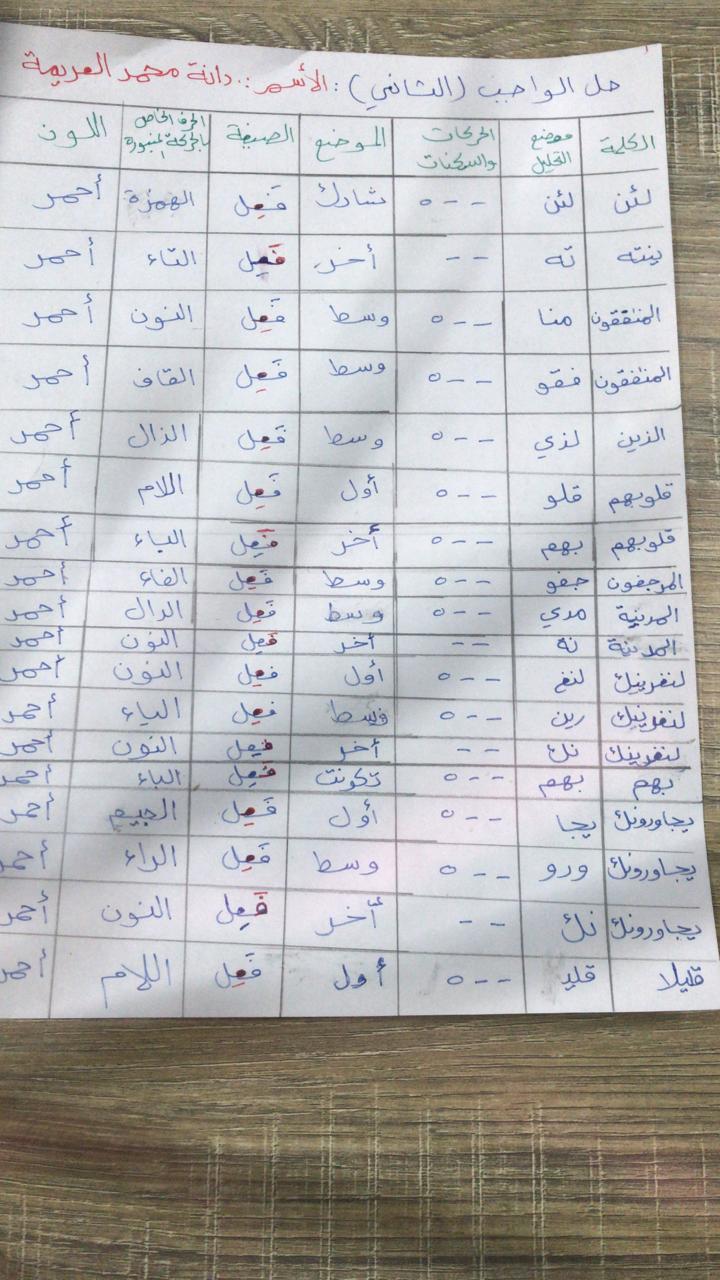 حل الواجب (الثاني) : الأسم : دانة محمد العريمة
الكلمة موضع التحليل الحركات والسكنات الموضع الصيغة الحرف الخاص بالحركة المنبورة اللون
لئن لئن --ه تشارك فَعِل الهمزة أحمر
ينته ته -- أخر فَعِل التاء أحمر
المنفقون منا --ه وسط فَعِل النون أحمر
المنفقون فقو --ه وسط فَعِل القاف أحمر
الذين لذي --ه وسط فَعِل الذال أحمر
قلوبهم قلو --ه أول فَعِل اللام أحمر
قلوبهم بهم --ه أخر فَعِل الباء أحمر
المرجفون جفو --ه وسط فَعِل الفاء أحمر
المدنية مدي --ه وسط فَعِل الدال أحمر
المدينة نة -- أخر فَعِل النون أحمر
لنغرينك لنغ --ه أول فعِل النون أحمر
لنغرينك رين --ه وسط فعِل الياء أحمر
لنغرينك نك -- أخر فَعِل النون أحمر
بهم بهم --ه تكونت فَعِل الباء أحمر
يجاورونك يجا --ه أول فَعِل الجيم أحمر
يجاورونك ورو --ه وسط فَعِل الراء أحمر
يجاورونك نك -- أخر فَعِل النون أحمر
قليلا قلي --ه أول فَعِل اللام أحمر